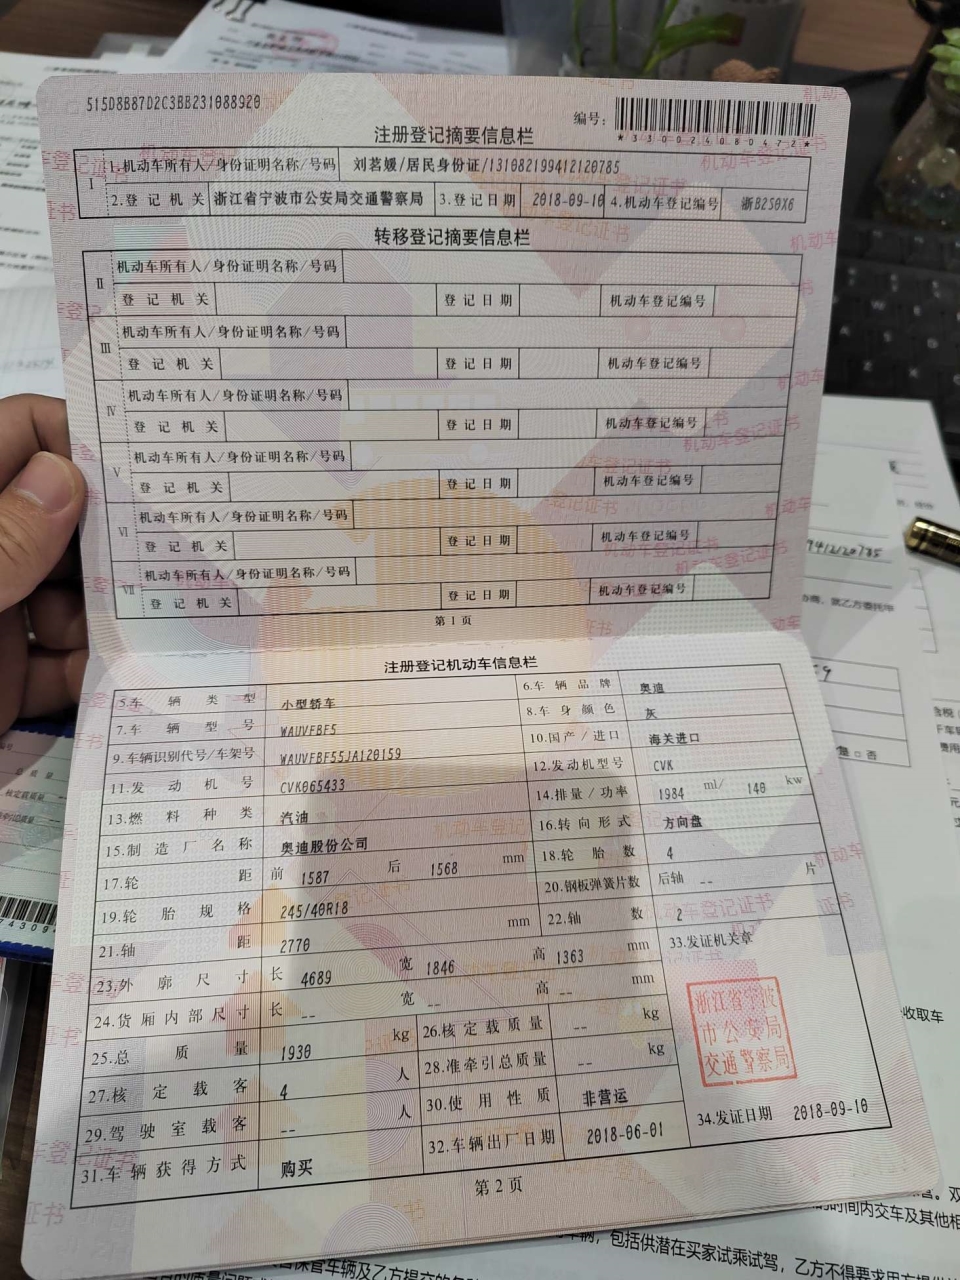 515D8B87D2C3BB231088920
编号:
*330024080472*
注册登记摘要信息栏
I 1.机动车所有人/身份证明名称/号码 刘茗媛/居民身份证/131082199412120785
2.登记机关 浙江省宁波市公安局交通警察局 3.登记日期 2018-09-10 4.机动车登记编号 浙B250X6
转移登记摘要信息栏
II 机动车所有人/身份证明名称/号码
登记机关 登记日期 机动车登记编号
III 机动车所有人/身份证明名称/号码
登记机关 登记日期 机动车登记编号
IV 机动车所有人/身份证明名称/号码
登记机关 登记日期 机动车登记编号
V 机动车所有人/身份证明名称/号码
登记机关 登记日期 机动车登记编号
VI 机动车所有人/身份证明名称/号码
登记机关 登记日期 机动车登记编号
VII 机动车所有人/身份证明名称/号码
登记机关 登记日期 机动车登记编号
第1页
注册登记机动车信息栏
5.车辆类型 小型轿车 6.车辆品牌 奥迪
7.车辆型号 WAUVFBF5 8.车身颜色 灰
9.车辆识别代号/车架号 WAUVFBF55JA120159 10.国产/进口 海关进口
11.发动机号 CVK065433 12.发动机型号 CVK
13.燃料种类 汽油 14.排量/功率 1984 ml/ 140 kw
15.制造厂名称 奥迪股份公司 16.转向形式 方向盘
17.轮距 前 1587 后 1568 mm 18.轮胎数 4
19.轮胎规格 245/40R18 20.钢板弹簧片数 后轴 -- 片
21.轴距 2770 mm 22.轴数 2
23.外廓尺寸 长 4689 宽 1846 高 1363 mm 33.发证机关章
24.货厢内部尺寸 长 -- 宽 -- 高 -- mm
浙江省宁波市公安局交通警察局
25.总质量 1930 kg 26.核定载质量 -- kg
27.核定载客 4 人 28.准牵引总质量 -- kg
29.驾驶室载客 -- 人 30.使用性质 非营运
31.车辆获得方式 购买 32.车辆出厂日期 2018-06-01 34.发证日期 2018-09-10
第2页
收取车
的时间内交车及其他相
包括供潜在买家试乘试驾，乙方不得要求甲方提供